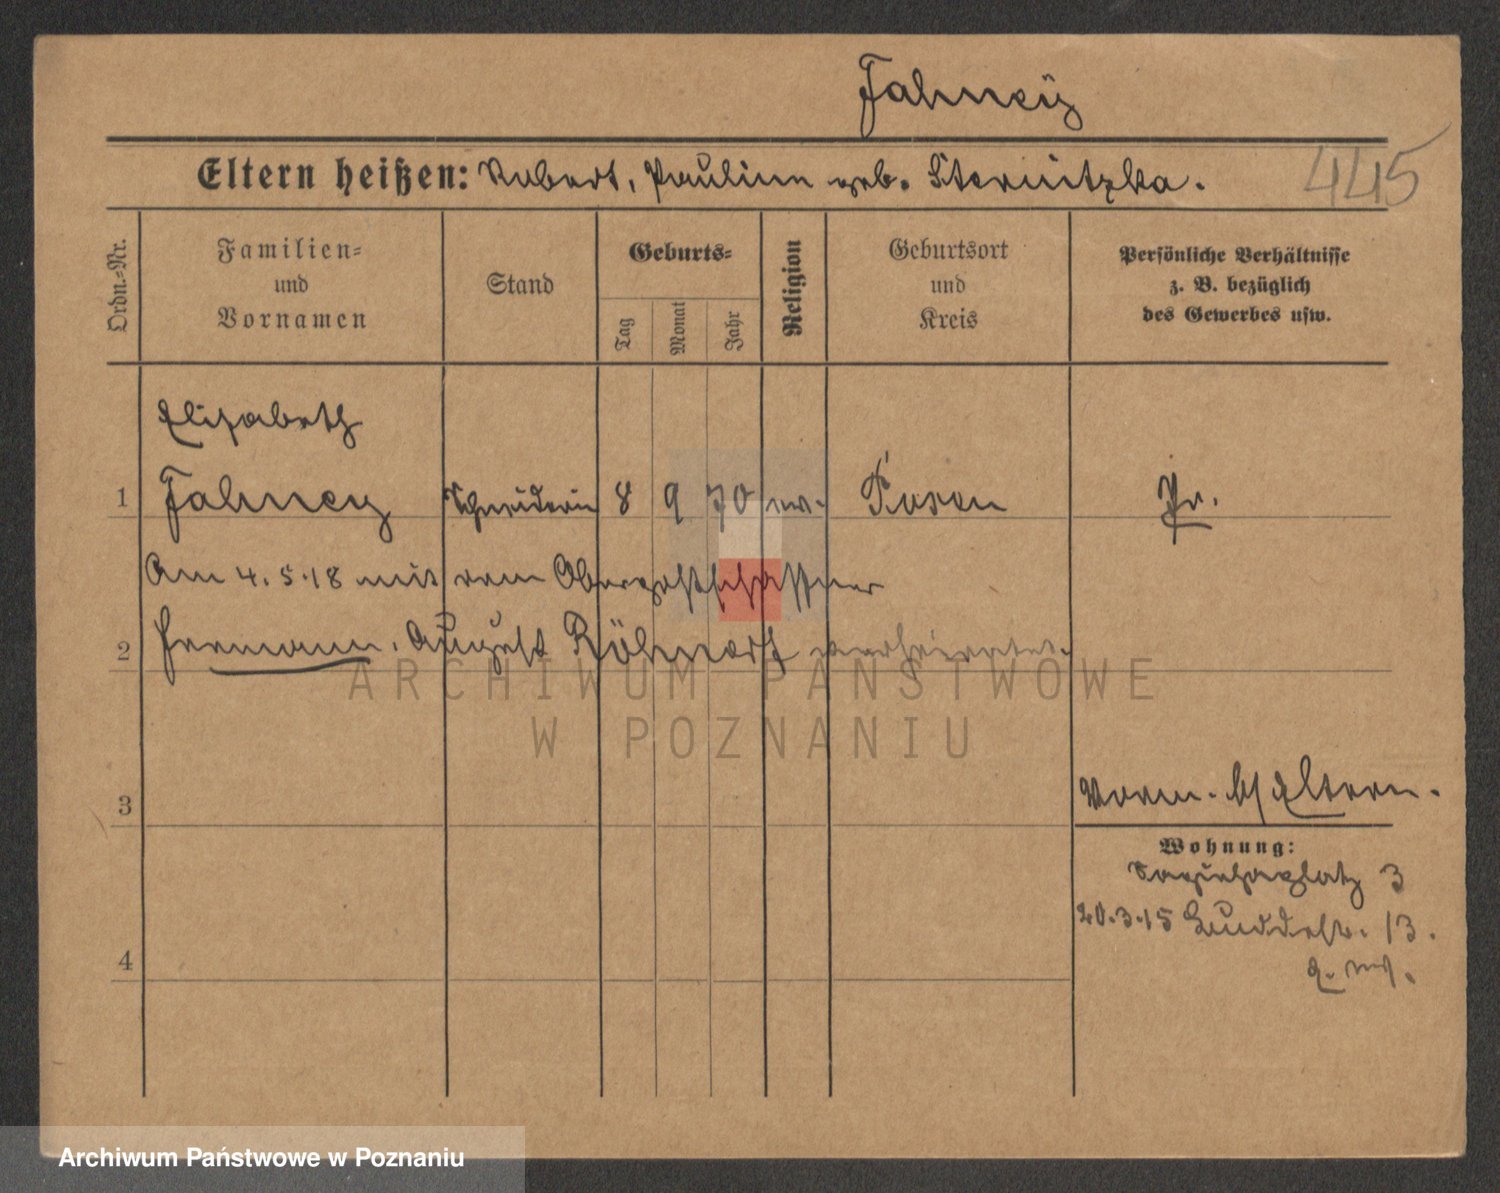 Fahneÿ
Eltern heißen: Robert, Pauline geb. Sternitzka.
445
Ordn.=Nr.
Familien=
und
Vornamen
Stand
Geburts=
Tag
Monat
Jahr
Religion
Geburtsort
und
Kreis
Persönliche Verhältnisse
z. B. bezüglich
des Gewerbes usw.
Elisabeth
1 Fahney Schneiderin 8 9 70 ev. Posen Pr.
Am 4.5.18 mit dem Oberpostschaffner
2 Hermann August Röhnert verheiratet.
ARCHIWUM PAŃSTWOWE
W POZNANIU
3
Vorm. b/ Eltern.
Wohnung:
Sapiehaplatz 3
20.3.15 13.
4
Archiwum Państwowe w Poznaniu